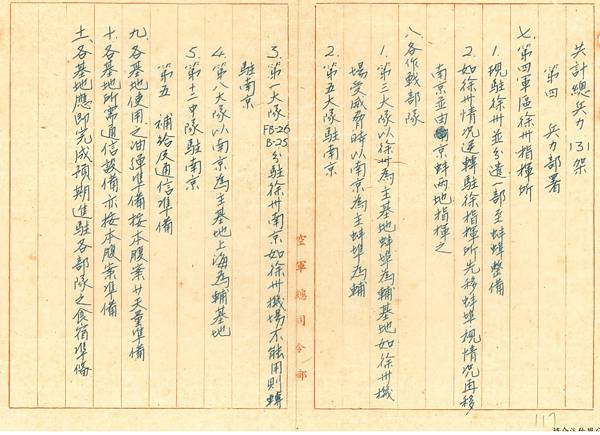 共計總兵力131架
第四 兵力部署
七、第四軍區徐州指揮所
1. 現駐徐州並分遣一部至蚌埠整備
2. 如徐州情況逆轉駐徐指揮所先移蚌埠視情況再移
南京並由京蚌兩地指揮之
八、各作戰部隊
1. 第三大隊以徐州為主基地蚌埠為輔基地如徐州機
場受威脅時以南京為主蚌埠為輔
2. 第五大隊駐南京
空軍總司令部
3. 第一大隊FB-26 B-25分駐徐州南京如徐州機場不能用則轉
駐南京
4. 第八大隊以南京為主基地上海為輔基地
5. 第十二中隊駐南京
第五 補給及通信準備
九、各基地使用之油彈準備按本腹案廿天量準備
十、各基地所需通信設備亦按本腹案準備
十一、各基地應即完成預期進駐各部隊之食宿準備
117